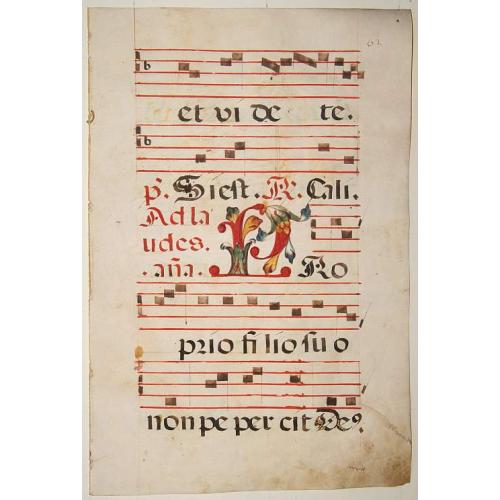 et vi de te.
p̄. Si est. R. Cali.
Ad la
udes.
. aña. P RO
prio fi lio su o
non pe per cit De9.